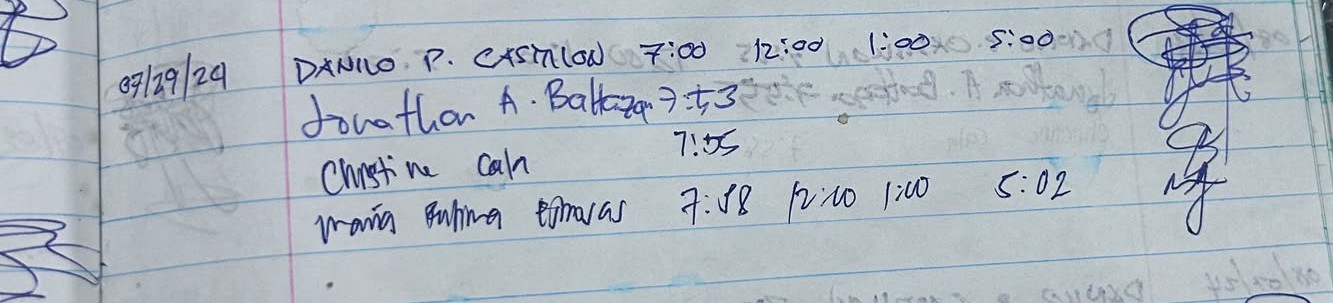 07/29/24 DANILO. P. CASTILLON 7:00 12:00 1:00 5:00
Jonathan A. Baltazar 7:53
Christine Cah 7:55
Maria 7:58 12:00 1:00 5:02